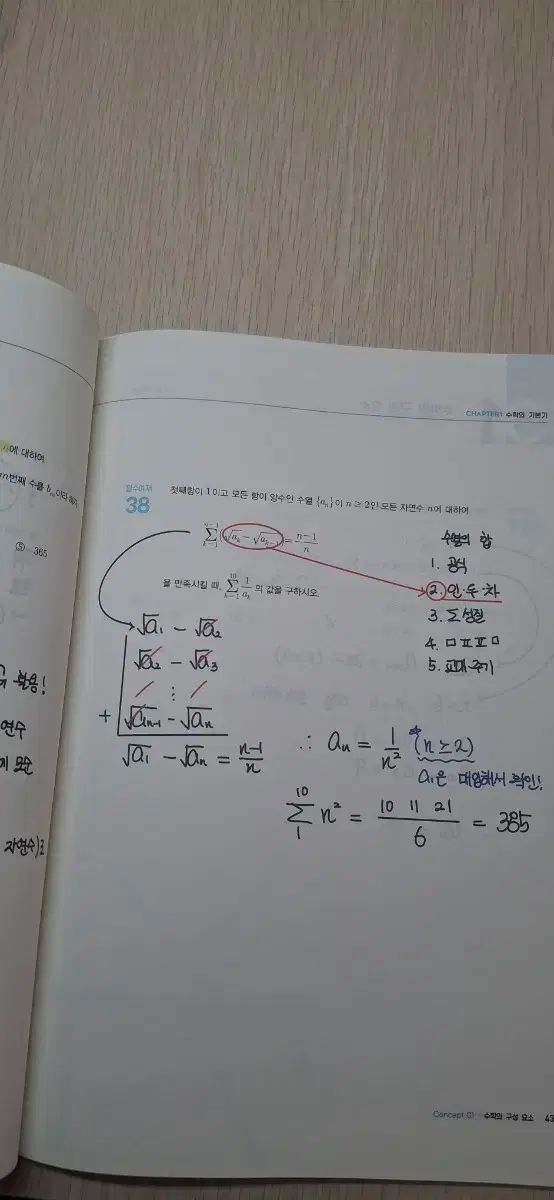 CHAPTER1 수학의 기본기
n에 대하여
m번째 수를 b_m이라 하자
⑤ 365
활용!
연수
자연수)로
필수예제
38
첫째항이 1이고 모든 항이 양수인 수열 {a_n}이 n ≥ 2인 모든 자연수 n에 대하여
\sum_{k=1}^{n-1} (\sqrt{a_k} - \sqrt{a_{k+1}}) = \frac{n-1}{n}
을 만족시킬 때, \sum_{k=1}^{10} \frac{1}{a_k} 의 값을 구하시오.
수열의 합
1. 공식
2. 인·두·차
3. Σ성질
4. ㅁㅍㅍㅁ
5. 교대·주기
√a₁ - √a₂
√a₂ - √a₃
⋮
+ √aₙ₋₁ - √aₙ
√a₁ - √aₙ = \frac{n-1}{n}
∴ aₙ = \frac{1}{n²} * (n ≥ 2)
a₁은 대입해서 확인!
\sum_{1}^{10} n² = \frac{10 11 21}{6} = 385
Concept 01 수학의 구성 요소 43